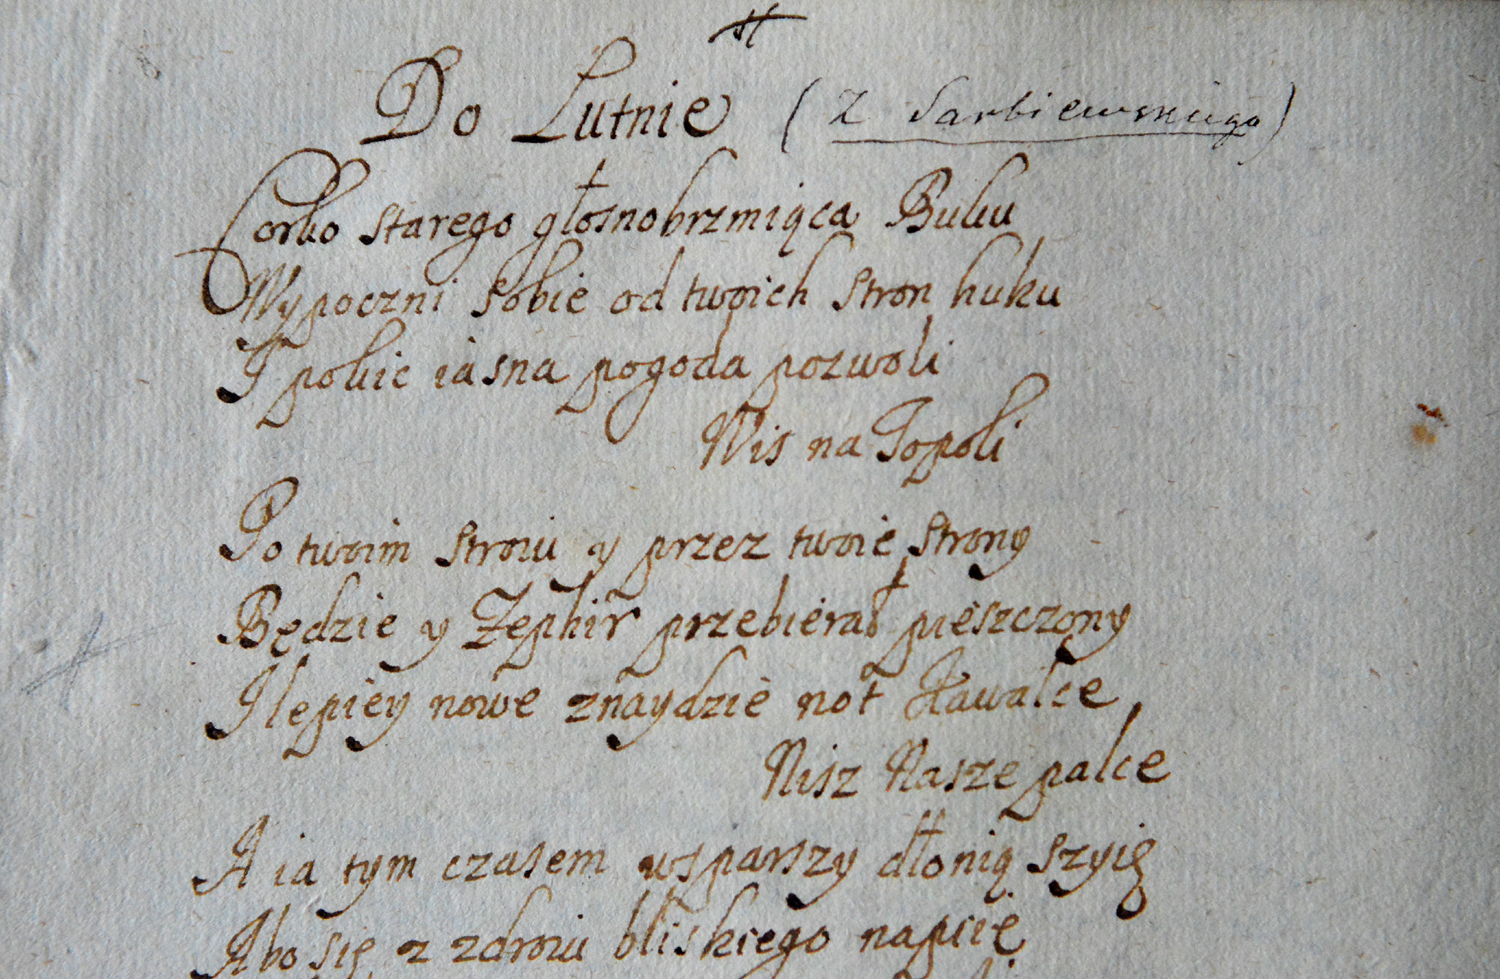 Do Lutnie (Z Sarbiewskiego)
Corko starego głosnobrzmiąca Buku
Wypoczni sobie od twoich stron huku
I pokie iasna pogoda pozwoli
Wis na Topoli
Po twoim stroiu y przez twoie strony
Będzie y Zephir przebierał pieszczony
I lepiey nowe znaydzie not kawalce
Nisz Nasze palce
A ia tym czasem wsparszy dłonią szyię
Abo się z zdroiu bliskiego napiię